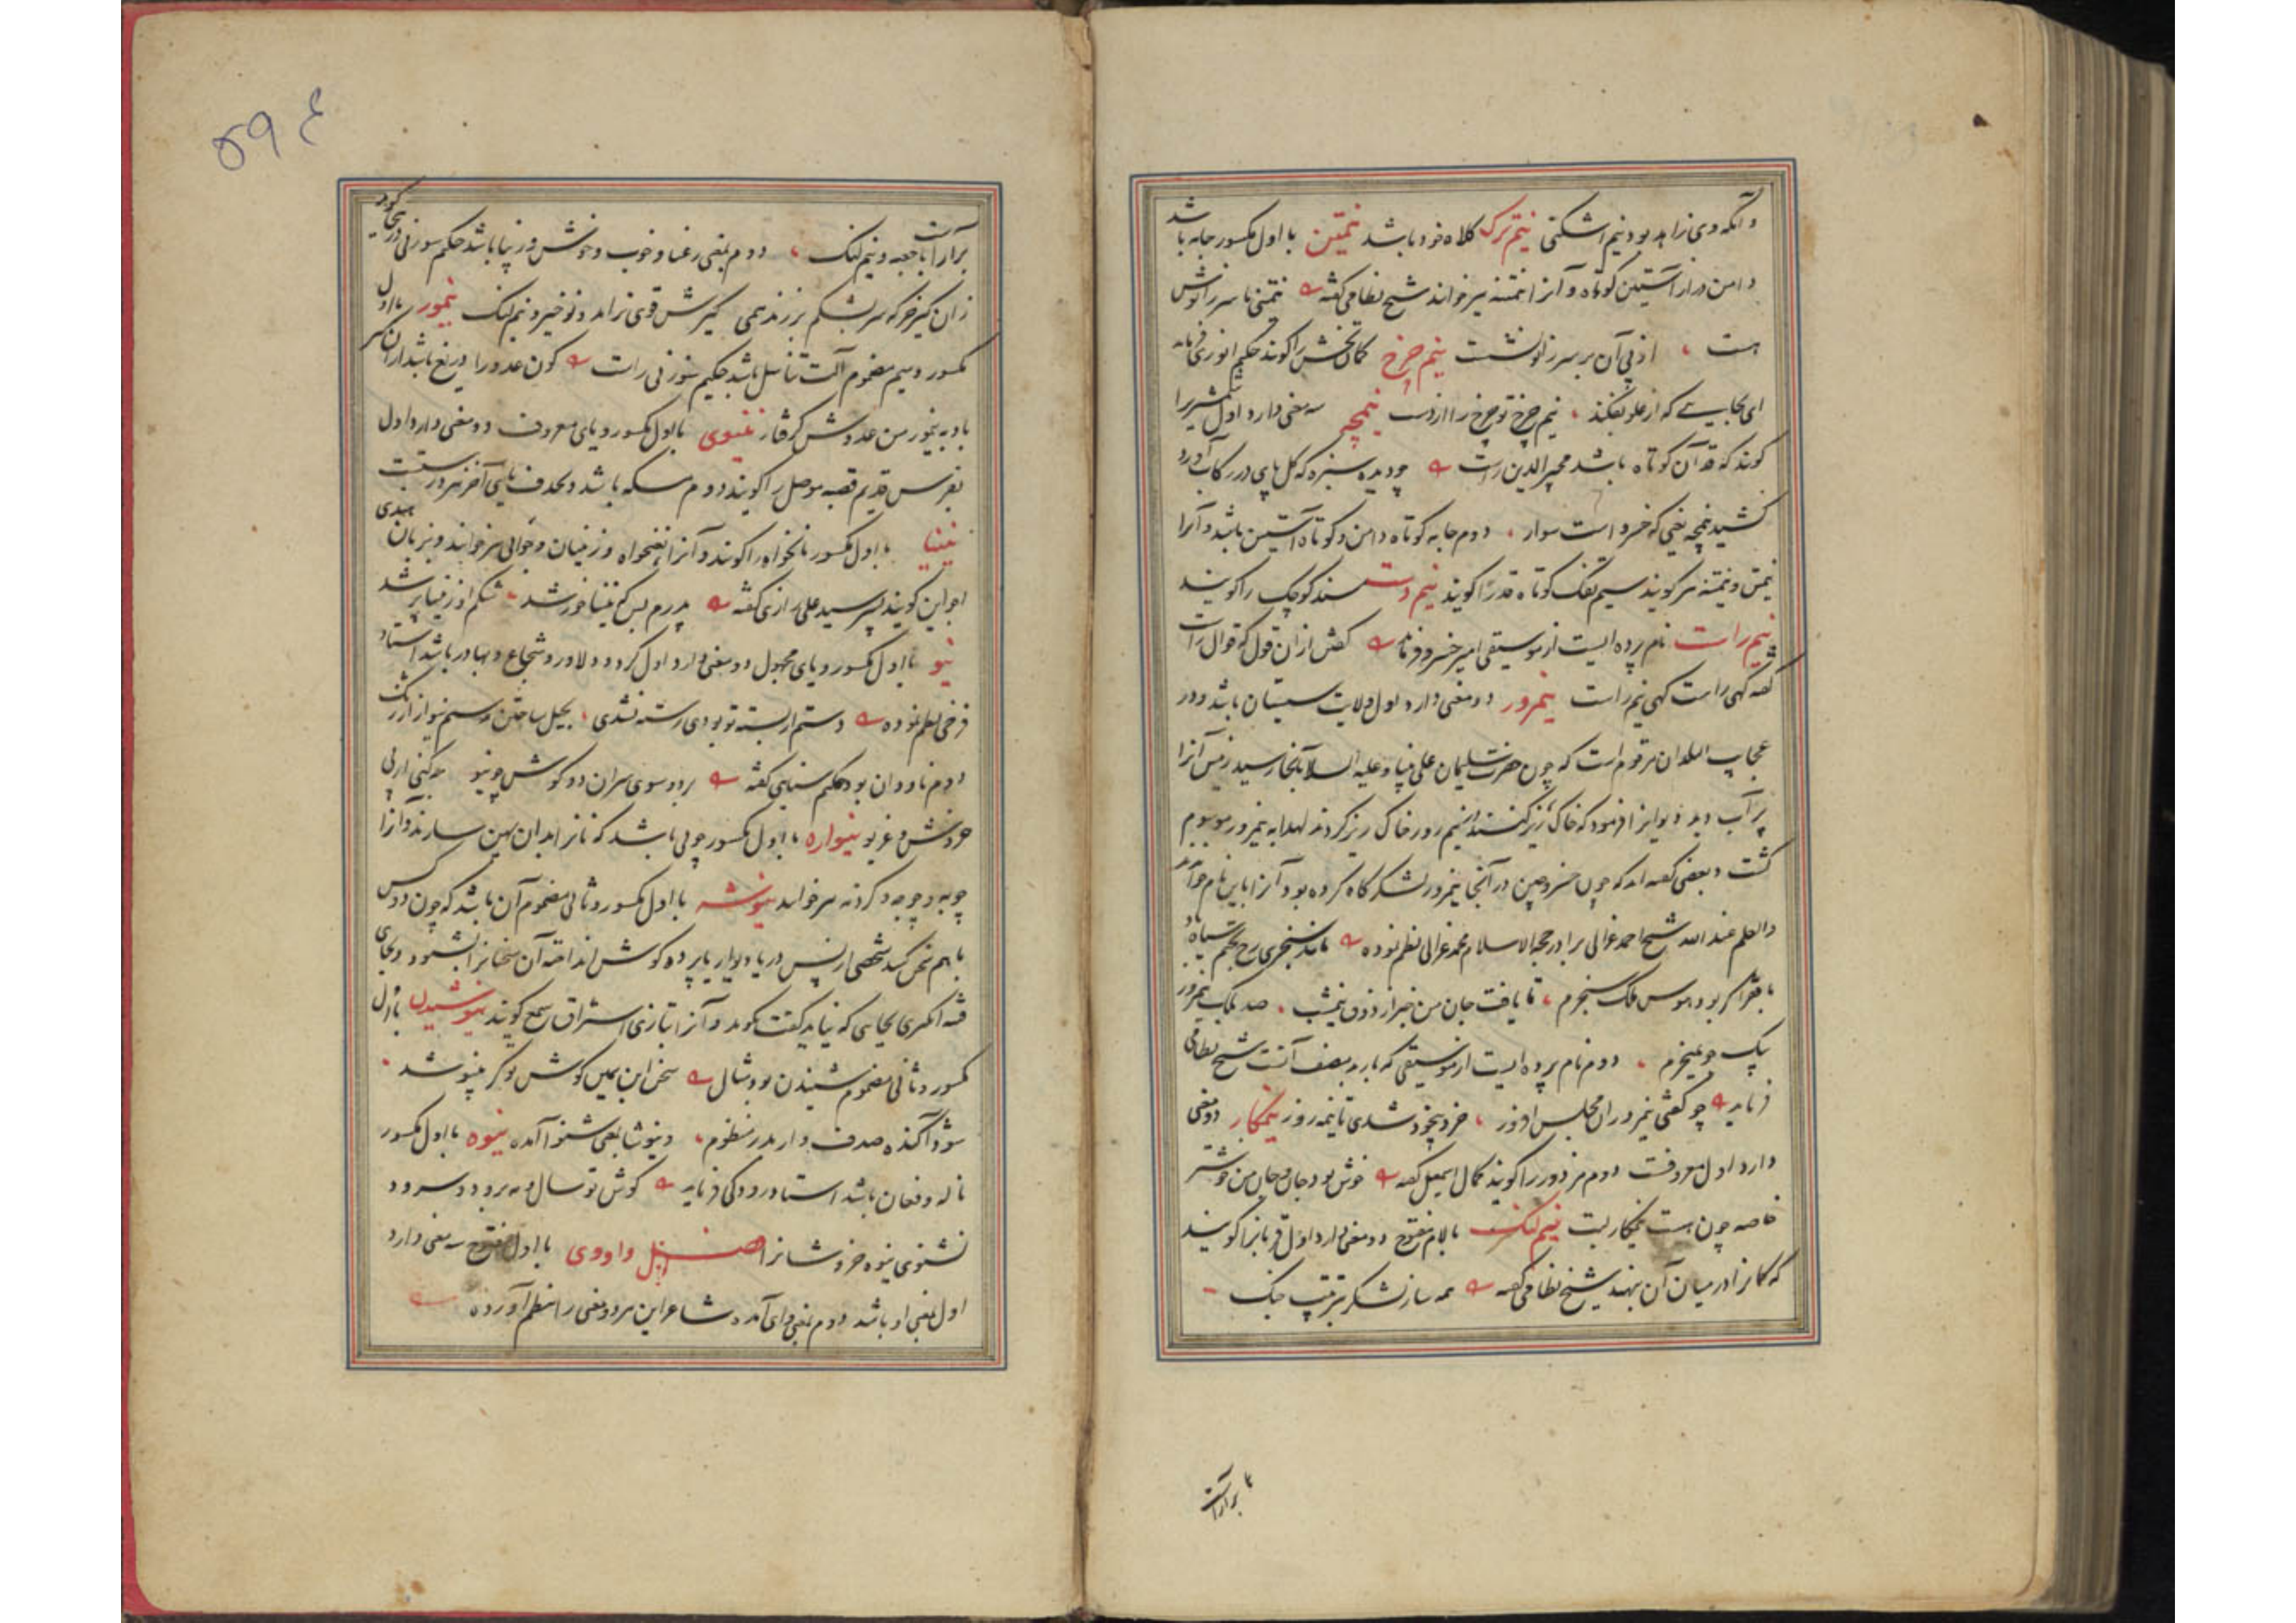 وانکه وی زاهد بود نیم اشکنی نیم ترک کلاه خود باشد نیمتن با اول مکسور جامه باشد
دامن دراز آستین کوتاه و آنرا نیمتنه نیز خوانند شیخ نظامی گفته نیمتنی تا سر زانوش
هست از پی آن بر سر زانو نشست نیم چرخ کمان تخش را گویند حکیم انوری فرماید
ای بجایی که از علو بفکند نیم چرخ تو چرخ را از دست نیمچه سه معنی دارد اول شمشیریرا
گویند که قد آن کوتاه باشد مجیرالدین راست چو دیده سبزه که گل پای در رکاب آورد
کشید نیمچه یعنی که خسرو است سوار دوم جامه کوتاه دامن و کوتاه آستین باشد و آنرا
نیمتن و نیمتنه نیز گویند سیم تفنک کوتاه قد را گویند نیم دست مسند کوچک را گویند
نیم راست نام پرده ایست از موسیقی امیر خسرو فرماید کفش از آن قول که قوال راست
گفته گهی راست گهی نیم راست نیمروز دو معنی دارد اول ولایت سیستان باشد و در
عجایب البلدان مرقوم است که چون حضرت سلیمان علی نبینا و علیه السلام آنجا رسید زمین آنرا
پر آب دید دیوانرا فرمود که خاک ریز کنند در نیم روز خاک ریز کردند لهذا به نیمروز موسوم
گشت و بعضی گفته اند که چون خسرو چین در آنجا نیمروز لشکرگاه کرده بود آنرا باین نام خوانند
والعلم عند الله شیخ احمد غزالی برادر حجة الاسلام محمد غزالی نظم نموده مانند سنجری رخ بختم سیاه باد
با فقر اگر بود هوس ملک سنجرم تا یافت جان من خبر از ذوق نیمشب صد ملک نیمروز
بیک جو نمیخرم دوم نام پرده ایست از موسیقی که باربد مصنف آنست شیخ نظامی
فرماید چو گفتی نیمروز آن مجلس افروز خرد بیخود شدی تا نیمه روز نیمکار دو معنی
دارد اول معروفست دوم مزدور را گویند کمال اسمعیل گفته خوش بود جان و جان من خوشتر
خاصه چون هست نیمکار لبت نیم لنک با لام مفتوح دو معنی دارد اول قربانرا گویند
که کمانرا در میان آن نهند شیخ نظامی گفته همه ساز لشکر بترتیب جنک
برآراست
برآراست با جعبه و نیم لنک دوم بمعنی رعنا و خوب و خوش و زیبا باشد حکیم سوزنی در هجا گوید
زان کیر خر که سر بشکم بر زند همی کیرش قوی نر اند و نوخیز و نیم لنک نیمور با اول
مکسور و میم مضموم آلت تناسل باشد حکیم سوزنی راست کون عدو را دریغ باشد از آن کیر
باد به نیمور من عدوش گرفتار نینوی با اول مکسور و یای معروف دو معنی دارد اول
بفرس قدیم قصبه موصل را گویند دوم مسکه باشد و بحذف یای آخر نیز درست است
نینیا با اول مکسور نانخواه را گویند و آنرا نغنخواه و زنیان و جوانی نیز خوانند و بزبان هندی
اجواین گویند پسر سید علی رازی گفته پدرم بس که نینیا خور شد شکم او ز نینیا پر شد
نیو با اول مکسور و یای مجهول دو معنی دارد اول گرد و دلاور و شجاع و بهادر باشد استاد
فرخی نظم نموده رستم ار بسته تو بودی رسته نشدی بحیل ساختن رستم نیو از ارژنک
دوم ناودان بود حکیم سنایی گفته برد و سوی سران دو گوش چو نیو چه کنی از پی
خروش و غریو نیواره با اول مکسور چوبی باشد که نانرا بدان پهن سازند و آنرا
چوبه و چوجه و گردنه نیز خوانند نیوشه با اول مکسور و ثانی مضموم آن باشد که چون دو کس
باهم سخن کنند شخصی از پس در یا دیوار یا پرده گوش انداخته آن سخنانرا بشنود و بجای
فتنه انگیزی بجایی که نباید گفت بگوید و آنرا بتازی استراق سمع گویند نیوشیدن با اول
مکسور و ثانی مضموم شنیدن بود مثال سخن ابن یمین گوش تو گر نیوشد
شود آکنده صدف وار بدر منظوم و نیوشا یعنی شنوا آمده نیوه با اول مکسور
ناله و فغان باشد استاد رودکی فرماید گوش تو سال و مه برود و سرود
نشنوی نیوه خروشانرا فصل واوی وی با اول مفتوح سه معنی دارد
اول بمعنی او باشد دوم بمعنی وای آمده شاعر این هر دو معنی را منظم آورده